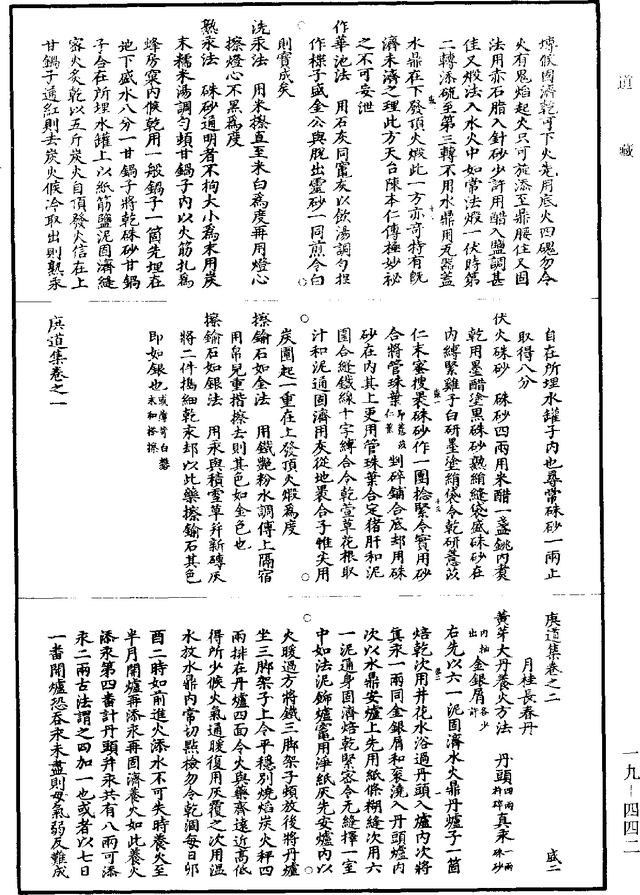 道藏
傅候固濟乾可下火先用底火四磈勿令
火有鬼焰起火只可旋添至鼎腰住又固
法用赤石脂入針砂少許用醋入鹽調甚
佳又煅法入水火中如常法煅一伏時第
二轉添硫至第三轉不用水鼎用瓦器蓋
水鼎在下發頂火煅此一方亦奇特有旣
濟未濟之理此方天台陳本仁傳極妙祕
之不可妄泄
作華池法　用石灰同竈灰以飲湯調勻捏
作樣子盛金公與脫出靈砂一同煎令白
則寶成矣
洗汞法　用米擦直至米白爲度再用燈心
擦燈心不黑爲度
熟汞法　硃砂通明者不拘大小爲末用炭
末糯米湯調勻頓甘鍋子內以火筋扎爲
蜂房窠內候乾用一般鍋子一箇先埋在
地下盛水八分一甘鍋子將乾硃砂甘鍋
子合在所埋水罐上以紙筋鹽泥固濟縫
密火炙乾以五斤炭火自頂發火信在上
甘鍋子通紅則去炭火候冷取出則熟汞
自在所埋水罐子內也尋常硃砂一兩止
取得八分
伏火硃砂　硃砂四兩用米醋一盞銚內煑
乾用墨醋塗黑硃砂熟絹縫袋盛硃砂在
內縛緊雞子白研墨塗絹袋令乾研薏苡
仁末蜜搜裹硃砂作一團捻緊令實用砂
合將管珠葉即薏苡仁葉剉碎鋪合底却用硃
砂在內其上更用管珠葉合定猪肝和泥
固合縫鐵線十字縛合令乾萱草花根取
汁和泥通固濟用灰從地裹合子惟尖用
炭圍起一重在上發頂火煅爲度
擦鍮石如金法　用鐵艷粉水調傅上隔宿
用帛兒重揩擦去則其色如金色也
擦鍮石如銀法　用汞與積雪草幷新磚灰
將二件搗細乾末却以此藥擦鍮石其色
即如銀也
庚道集卷之一
庚道集卷之二　盛二
月桂長春丹
黃芽大丹養火方法　丹頭四兩杵碎真汞一兩硃砂內抽出金銀屑各少許
右先以六一泥固濟水火鼎丹爐子一箇
焙乾次用井花水浴過丹頭入爐內次將
真汞一兩同金銀屑和衮澆入丹頭爐內
次以水鼎安爐上先用紙條糊縫次用六
一泥通身固濟焙乾緊密令无縫擇一室
中如法泥飾爐竈用淨紙灰先安爐內以
火暖過方將鐵三脚架子頓放後將丹爐
坐三脚架子上令平穩別燒焰炭火秤四
兩排在丹爐四面令火與藥齊遠近高低
得所少候火氣通暖復用灰覆之次用溫
水放水鼎內常切點檢勿令乾涸每日卯
酉二時如前進火添水不可失時養火至
半月開爐再添汞再固濟養火如此養火
添汞第四番計丹頭幷汞共有八兩可添
汞二兩古法謂之四加一也或者以七日
一番開爐恐吞汞未盡則母氣弱反難成
一九—四四二